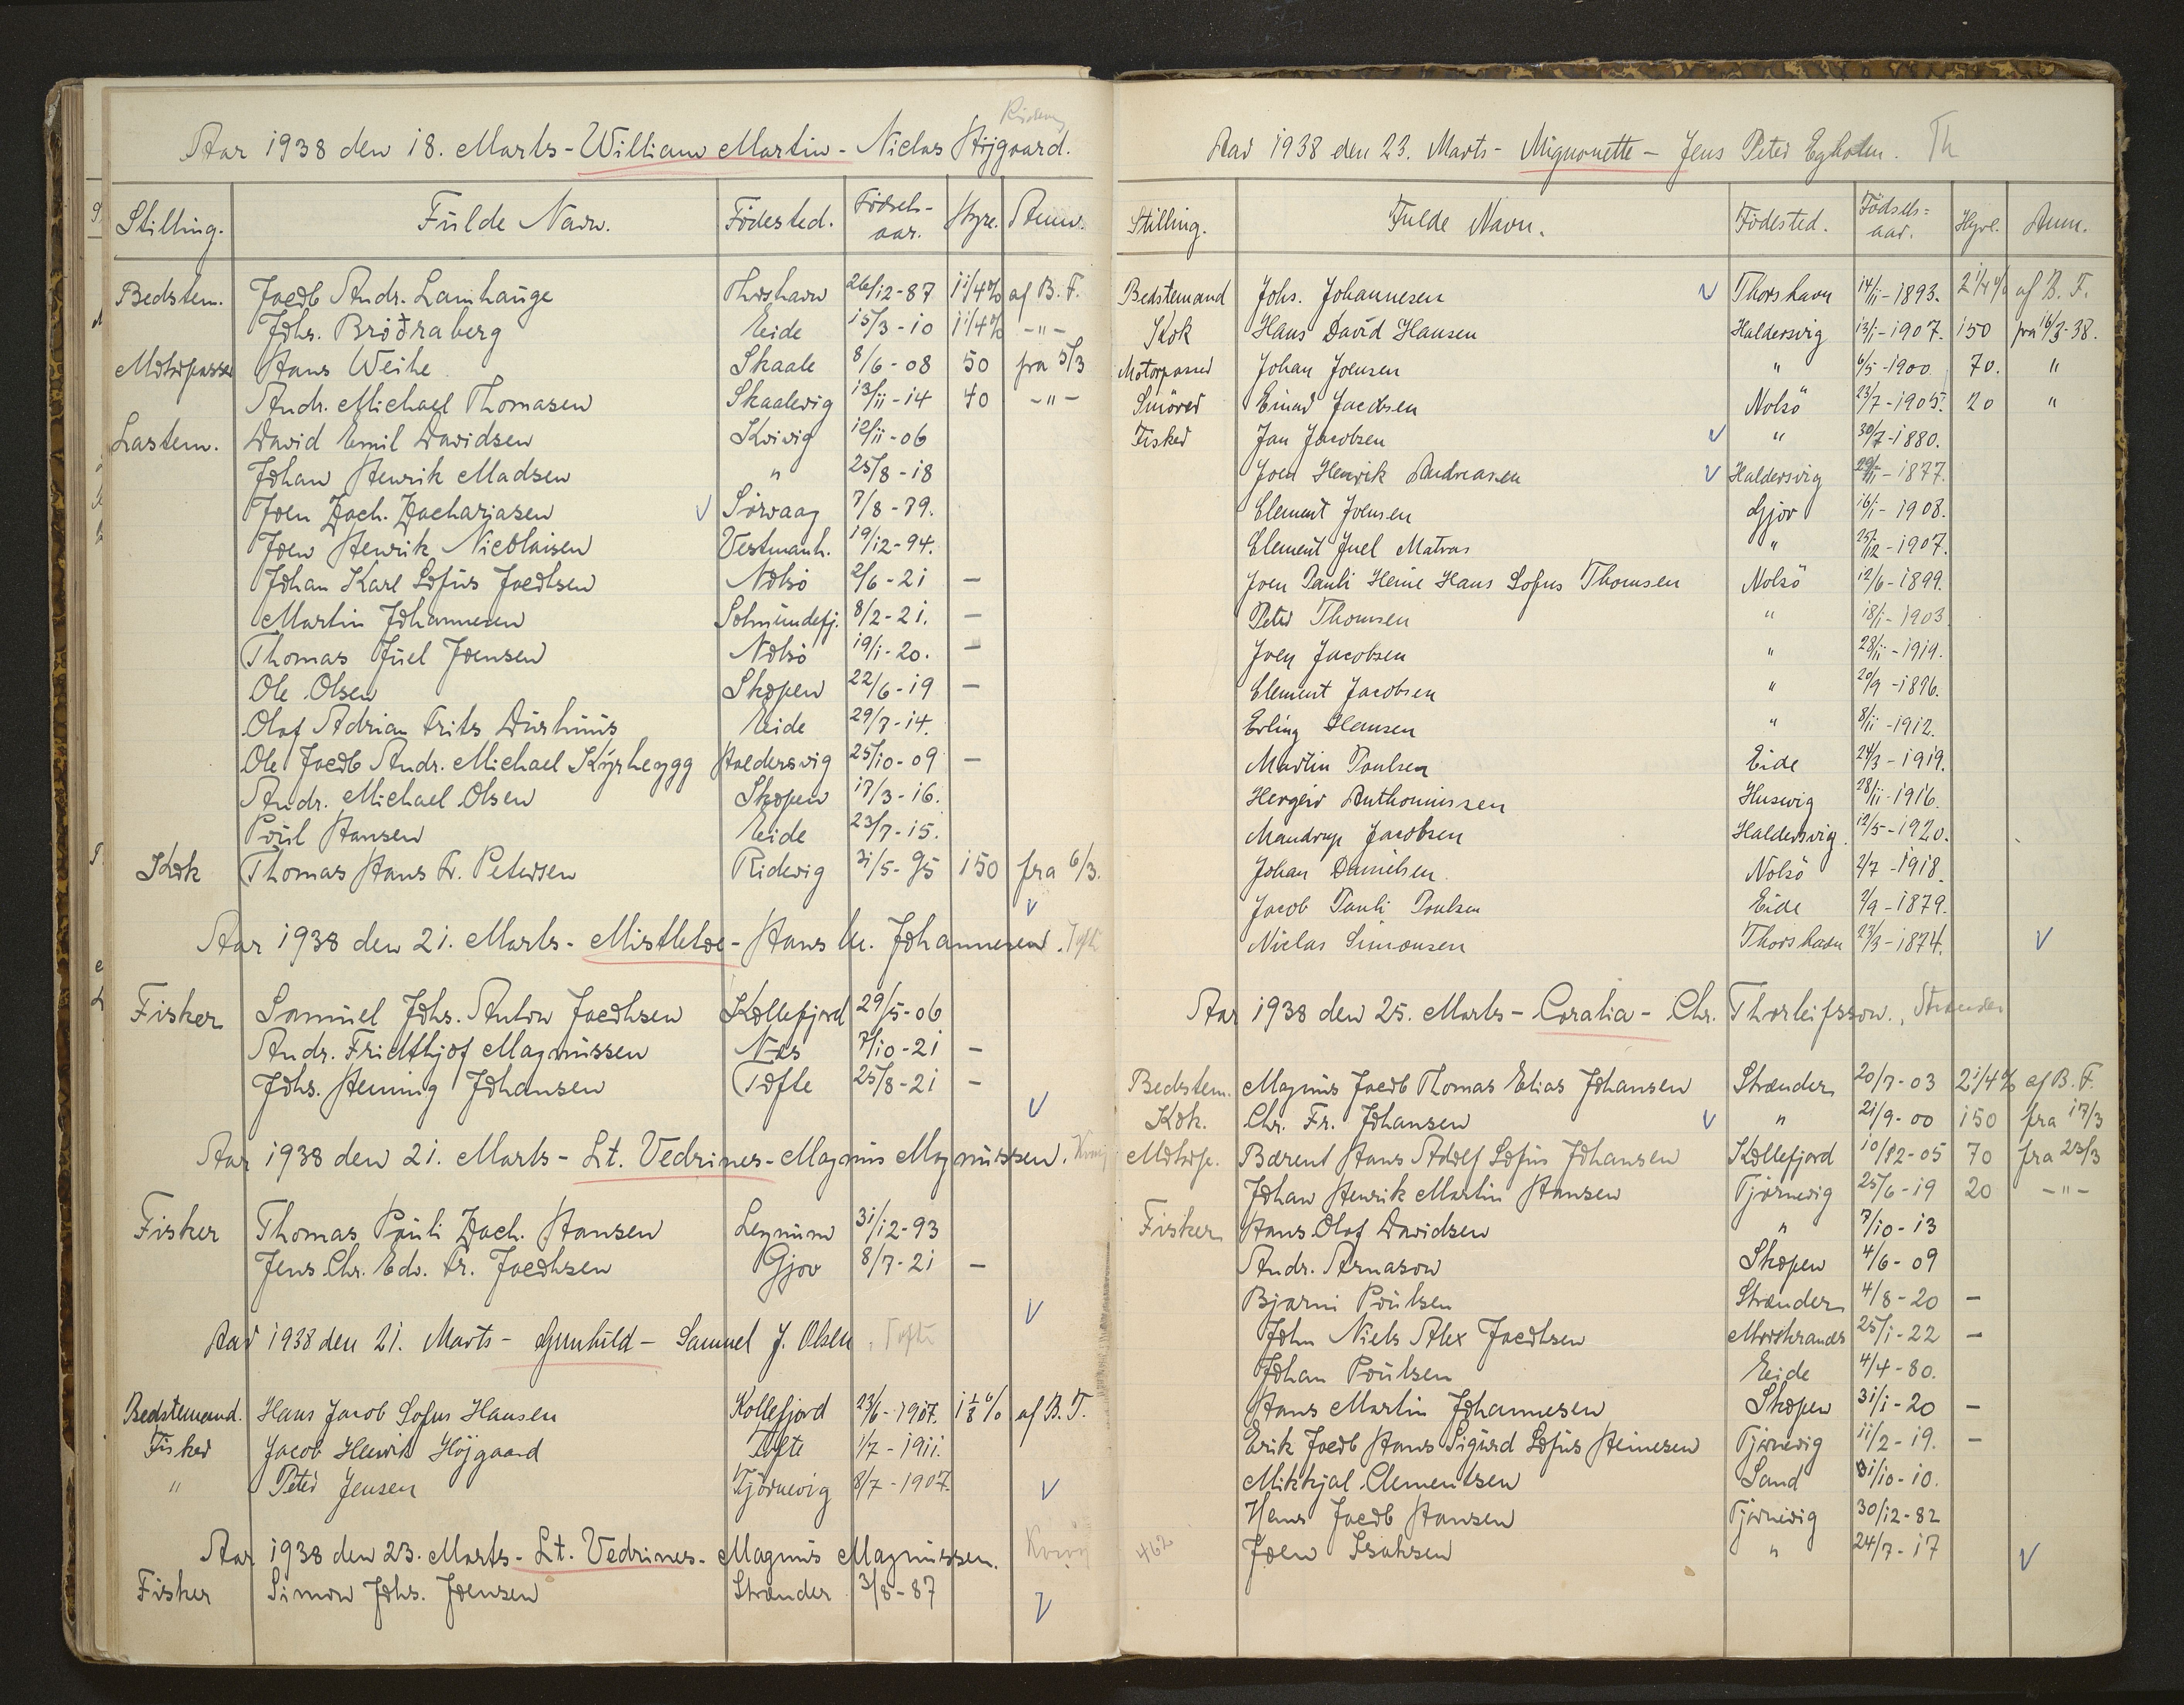 Aar 1938 den 18. Marts - William Martin - Niclas Højgaard.
Stilling. Fulde Navn. Fødested. Fødsels-aar. Hyre. Anm.
Bedstem. Jacob Andr. Lamhauge Thorshavn 26/12-87 1 1/4% af B. F.
Johs. Broðraberg Eide 15/3-10 1 1/4% -"-
Motorpasser Hans Weihe Skaale 8/6-08 50 fra 5/3
Andr. Michael Thomasen Skaalevig 13/11-14 40 -"-
Lastem. David Emil Davidsen Kvivig 12/11-06
Johan Henrik Madsen " 25/8-18
Joen Zach. Zachariasen V Sørvaag 7/8-79.
Joen Henrik Nicolaisen Vestmanh. 19/12-94.
Johan Karl Sofus Jacobsen Nolsø 2/6-21 -
Martin Johannesen Solmundefj. 8/2-21. -
Thomas Juel Joensen Nolsø 19/1-20. -
Ole Olsen Skopen 22/6-19 -
Olof Adrian Frits Durhuus Eide 29/7-14.
Ole Jacob Andr. Michael Kýrheygg Haldersvig 25/10-09 -
Andr. Michael Olsen Skopen 17/3-16.
Poul Hansen Eide 23/7-15.
Kok Thomas Hans Fr. Petersen Ridevig 31/5-95 150 fra 6/3.
V
Aar 1938 den 21. Marts - Mistletoe - Hans M. Johannesen. Tofte
Fisker Samuel Johs. Anton Jacobsen Kollefjord 29/5-06
Andr. Fridthjof Magnussen Næs 7/10-21 -
Johs. Heining Johansen Tofte 25/8-21 -
V
Aar 1938 den 21. Marts - Lt. Vedrines - Magnus Magnussen.
Fisker Thomas Pauli Zach. Hansen Leynum 31/12-93
Jens Chr. Edv. Fr. Jacobsen Gjov 8/7-21 -
V
Aar 1938 den 21. Marts - Gunhild - Samuel J. Olsen, Tofte
Bedstemand. Hans Jacob Sofus Hansen Kollefjord 23/6-1907. 1 1/8 % af B. F.
Fisker Jacob Henrik Höjgaard Tofte 1/7-1911.
" Peter Jensen Tjörnevig 8/7-1907. V
Aar 1938 den 23. Marts - Lt. Vedrines - Magnus Magnussen.
Fisker Simon Johs. Joensen Strænder 3/8-87 V
Aar 1938 den 23. Marts - Mignonette - Jens Peter Egholm. Th
Stilling. Fulde Navn. Födested. Födsels=aar. Hyre. Anm.
Bedstemand Johs. Johannesen V Thorshavn 14/11-1893. 2 1/4% af B. F.
Kok Hans David Hansen Haldersvig 13/1-1907. 150 fra 16/3-38.
Motorpasser Johan Joensen " 6/5-1900. 70. "
Smörer Einar Jacobsen Nolsö 23/7-1905. 20 "
Fisker Jan Jacobsen V " 30/7-1880.
Joen Henrik Andreasen V Haldersvig 29/11-1877.
Clement Joensen Gjov 16/1-1908.
Clement Juel Matras " 25/12-1907.
Joen Pauli Heine Hans Sofus Thomsen Nolsö 12/6-1899.
Peter Thomsen " 18/1-1903
Joen Jacobsen " 28/11-1919.
Clement Jacobsen " 20/9-1896.
Erling Hansen " 8/11-1912.
Martin Poulsen Eide 24/3-1919.
Hergeir Anthoniussen Husevig 28/11-1916.
Mandrup Jacobsen Haldersvig 12/5-1920.
Johan Danielsen. Nolsö 2/7-1918.
Jacob Pauli Poulsen Eide 2/9-1879.
Niclas Simonsen Thorshavn 23/3-1874. V
Aar 1938 den 25. Marts - Coralia - Chr. Thorleifsson., Strænder
Bedstem. Magnus Jacob Thomas Elias Johansen Strænder 20/7-03 2 1/4% af B. F.
Kok. Chr. Fr. Johansen V " 21/9-00 150 fra 17/3
Motorp. Barent Hans Adolf Sofus Johansen Kollefjord 10/12-05 70 fra 23/3
Johan Henrik Martin Hansen Tjørnevig 25/6-19 20 -"-
Fisker Hans Olof Davidsen " 7/10-13
Andr. Arnason Skopen 4/6-09
Bjarni Poulsen Strænder 4/8-20 -
John Niels Alex Jacobsen Morskranes 25/1-22 -
Johan Poulsen Eide 4/4-80.
Hans Martin Johannesen Skopen 31/1-20 -
Erik Jacob Hans Sigurd Sofus Heinesen Tjørnevig 11/2-19. -
Mikkjal Clementsen Sand 31/10-10.
Hans Jacob Hansen Tjørnevig 30/12-82
462 Joen Isaksen " 24/7-17 V